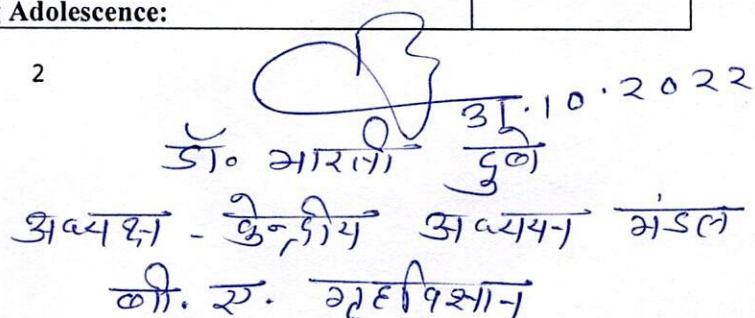 Adolescence:
2
31.10.2022
डॉ. भारती दुबे
अध्यक्ष - केन्द्रीय अध्ययन मंडल
बी. ए. गृहविज्ञान